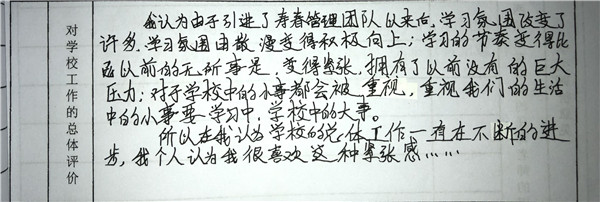 对学校工作的总体评价
我认为由于引进了寿春管理团队以来后,学习氛围改变了
许多,学习氛围由散漫变得积极向上;学习的节奏变得比
以前的无所事是,变得紧张,拥有了以前没有的巨大
压力;对于学校中的小事都会被重视,重视我们的生活
中的小事是学习中,学校中的大事。
所以在我认为学校的总体工作一直在不断的进
步,我个人认为我很喜欢这种紧张感……